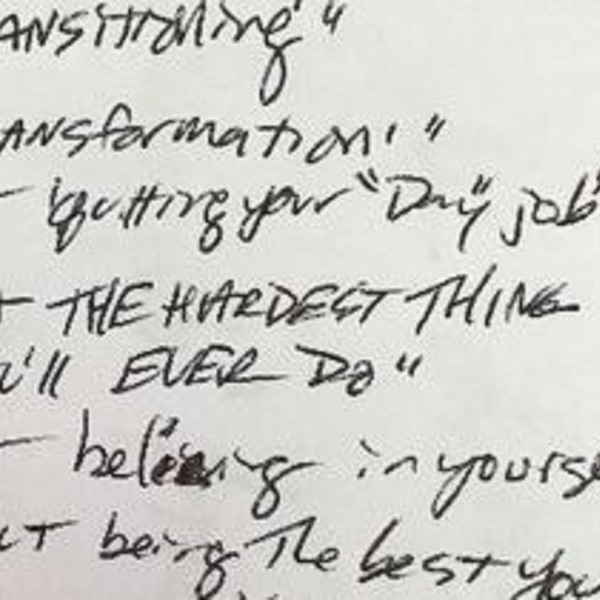 ANSitioning"
ANSformation!"
quitting your "Day" job"
THE HARDEST THING
u'll EVER Do"
in yourse
ut being The best you